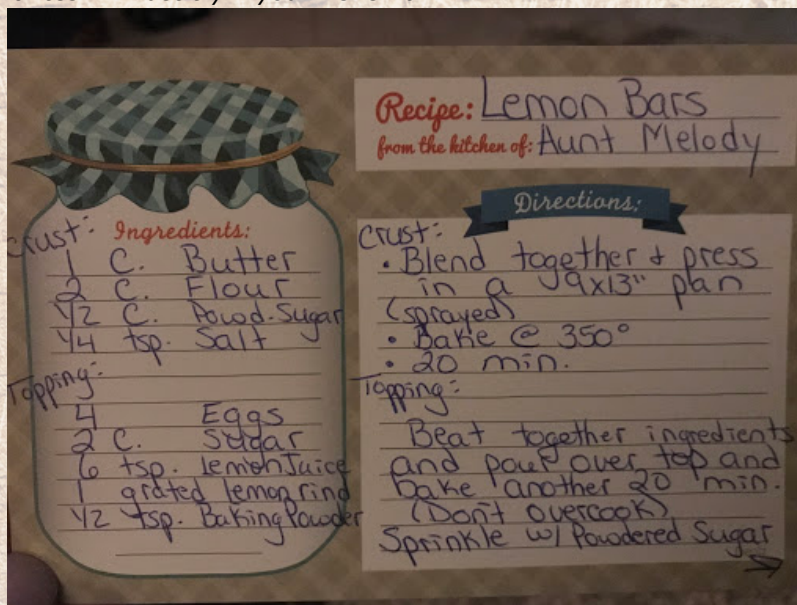 Recipe: Lemon Bars
from the kitchen of: Aunt Melody
Crust:
Ingredients:
1 C. Butter
2 C. Flour
1/2 C. Powd. Sugar
1/4 tsp. Salt
Topping:
4 Eggs
2 C. Sugar
6 tsp. lemon Juice
1 grated lemon rind
1/2 tsp. Baking Powder
Directions:
Crust:
• Blend together & press
in a 9x13" pan
(sprayed)
• Bake @ 350°
• 20 min.
Topping:
Beat together ingredients
and pour over top and
bake another 20 min.
(Don't overcook)
Sprinkle w/ Powdered Sugar